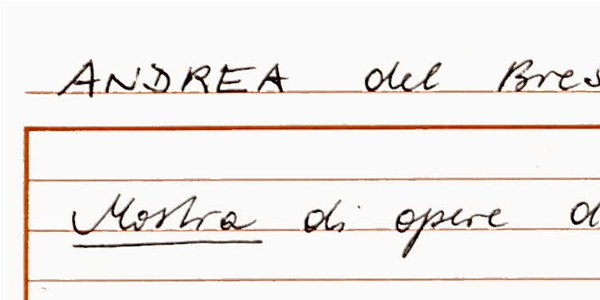 ANDREA del Bres
Mostra di opere d